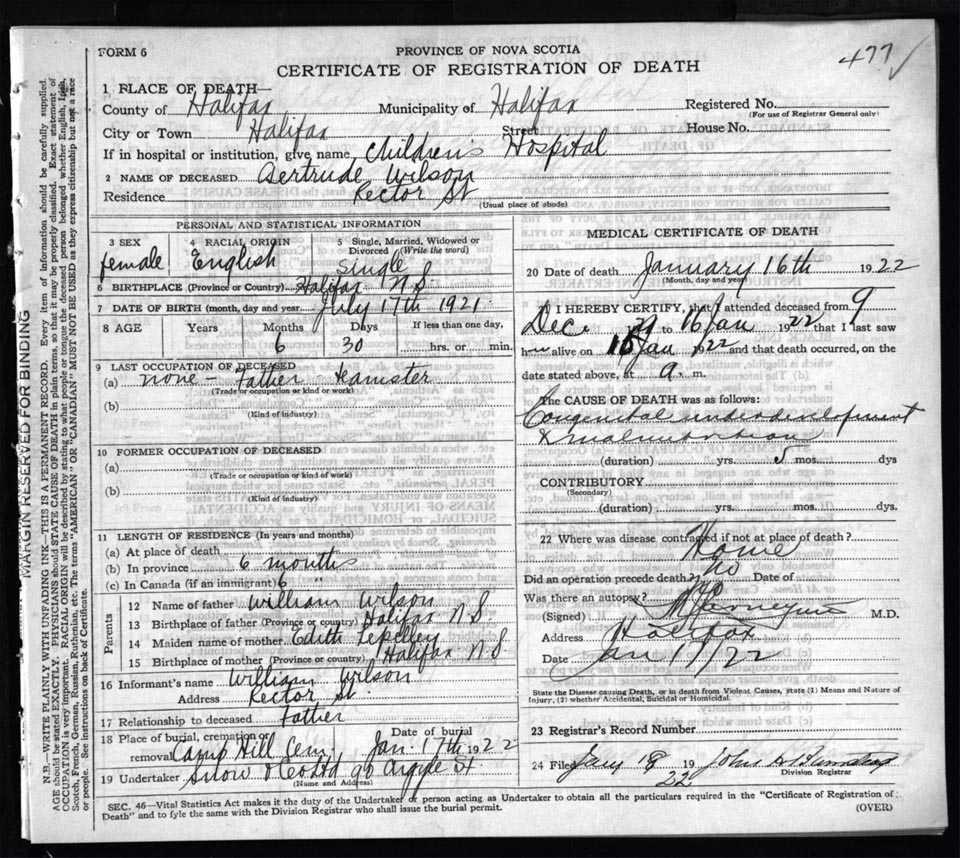 FORM 6
PROVINCE OF NOVA SCOTIA
CERTIFICATE OF REGISTRATION OF DEATH
477
1 PLACE OF DEATH—
County of Halifax Municipality of Halifax Registered No.
(For use of Registrar General only)
City or Town Halifax Street House No.
If in hospital or institution, give name Children's Hospital
2 NAME OF DECEASED Gertrude Wilson
Residence Rector St
(Usual place of abode)
PERSONAL AND STATISTICAL INFORMATION
3 SEX 4 RACIAL ORIGIN 5 Single, Married, Widowed or Divorced (Write the word)
female English Single
6 BIRTHPLACE (Province or Country) Halifax N S
7 DATE OF BIRTH (month, day and year July 17th 1921
8 AGE Years Months Days If less than one day,
6 30 hrs. or min.
9 LAST OCCUPATION OF DECEASED
(a) none – Father Teamster
(Trade or occupation as kind or work)
(b)
(Kind of industry)
10 FORMER OCCUPATION OF DECEASED
(a)
(Trade or occupation as kind of work)
(b)
(Kind of industry)
11 LENGTH OF RESIDENCE (In years and months)
(a) At place of death
(b) In province 6 months
(c) In Canada (if an immigrant) 6 "
Parents
12 Name of father William Wilson
13 Birthplace of father (Province or country) Halifax N S
14 Maiden name of mother Edith
15 Birthplace of mother (Province or country) Halifax N S
16 Informant's name William Wilson
Address Rector St
17 Relationship to deceased Father
18 Place of burial, cremation or removal Camp Hill Cem Date of burial Jan. 17th 1922
19 Undertaker Snow & Co Ltd 90 Argyle St
(Name and Address)
MEDICAL CERTIFICATE OF DEATH
20 Date of death January 16th 1922
(Month, day and year)
21 I HEREBY CERTIFY, that I attended deceased from 9
Dec. 21 to 16 Jan 1922 that I last saw
h alive on 16 Jan 1922 and that death occurred, on the
date stated above, at 9 m.
The CAUSE OF DEATH was as follows:
Congenital underdevelopment
& malnutrition
(duration) yrs. 5 mos. dys
CONTRIBUTORY
(Secondary)
(duration) yrs. mos. dys.
22 Where was disease contracted if not at place of death?
Home
Did an operation precede death? no Date of
Was there an autopsy?
(Signed) M.D.
Address Halifax
Date Jan 17/22
State the Disease causing Death, or in death from Violent Causes, state (1) Means and Nature of
Injury, (2) whether Accidental, Suicidal or Homicidal.
23 Registrar's Record Number
24 Filed Jany 18 22 John
Division Registrar
SEC. 46—Vital Statistics Act makes it the duty of the Undertaker or person acting as Undertaker to obtain all the particulars required in the "Certificate of Registration of
Death" and to fyle the same with the Division Registrar who shall issue the burial permit.
(OVER)
MARGIN RESERVED FOR BINDING
N.B.—WRITE PLAINLY WITH UNFADING INK—THIS IS A PERMANENT RECORD. Every item of information should be carefully supplied.
AGE should be stated EXACTLY. PHYSICIANS should STATE CAUSE OF DEATH in plain terms, so that it may be properly classified. Exact statement of
OCCUPATION is very important. RACIAL ORIGIN will be described by stating to what people or tongue the deceased person belonged whether English, Irish,
Scotch, French, German, Russian, Ruthenian, etc. The terms "AMERICAN" or "CANADIAN" MUST NOT BE USED as they express citizenship but not a race
or people. See instructions on back of Certificate.